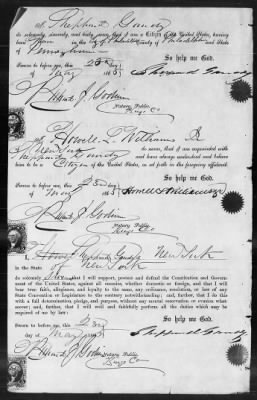 I, Shepherd Gandy
do solemnly, sincerely, and truly swear, that I am a Citizen of the United States, having
been born in the City of Philadelphia and State
of Pennsylvania
So help me God.
Sworn to before me, this 23rd day of
May 1865
Shepherd Gandy
Notary Public
Kings Co
I, Howell L. Williams Jr
of New York do swear, that I am acquainted with
Shepherd Gandy and have always understood and believe
him to be a Citizen of the United States, as set forth in the foregoing affidavit.
So help me God.
Sworn to before me, this 23 day
May 1865
Howell L Williams Jr
Notary Public
Kings Co
I, Shepherd Gandy of New York
in the State of New York
do solemnly swear that I will support, protect and defend the Constitution and Government
of the United States, against all enemies, whether domestic or foreign, and that I will
bear true faith, allegiance, and loyalty to the same, any ordinance, resolution, or law of any
State Convention or Legislature to the contrary notwithstanding; and, further, that I do this
with a full determination, pledge, and purpose, without any mental reservation or evasion
whatsoever; and, further, that I will well and faithfully perform all the duties which may be
required of me by law:
So help me God.
Sworn to before me, this 23rd
day of May 1865
Shepherd Gandy
Notary Public
Kings Co